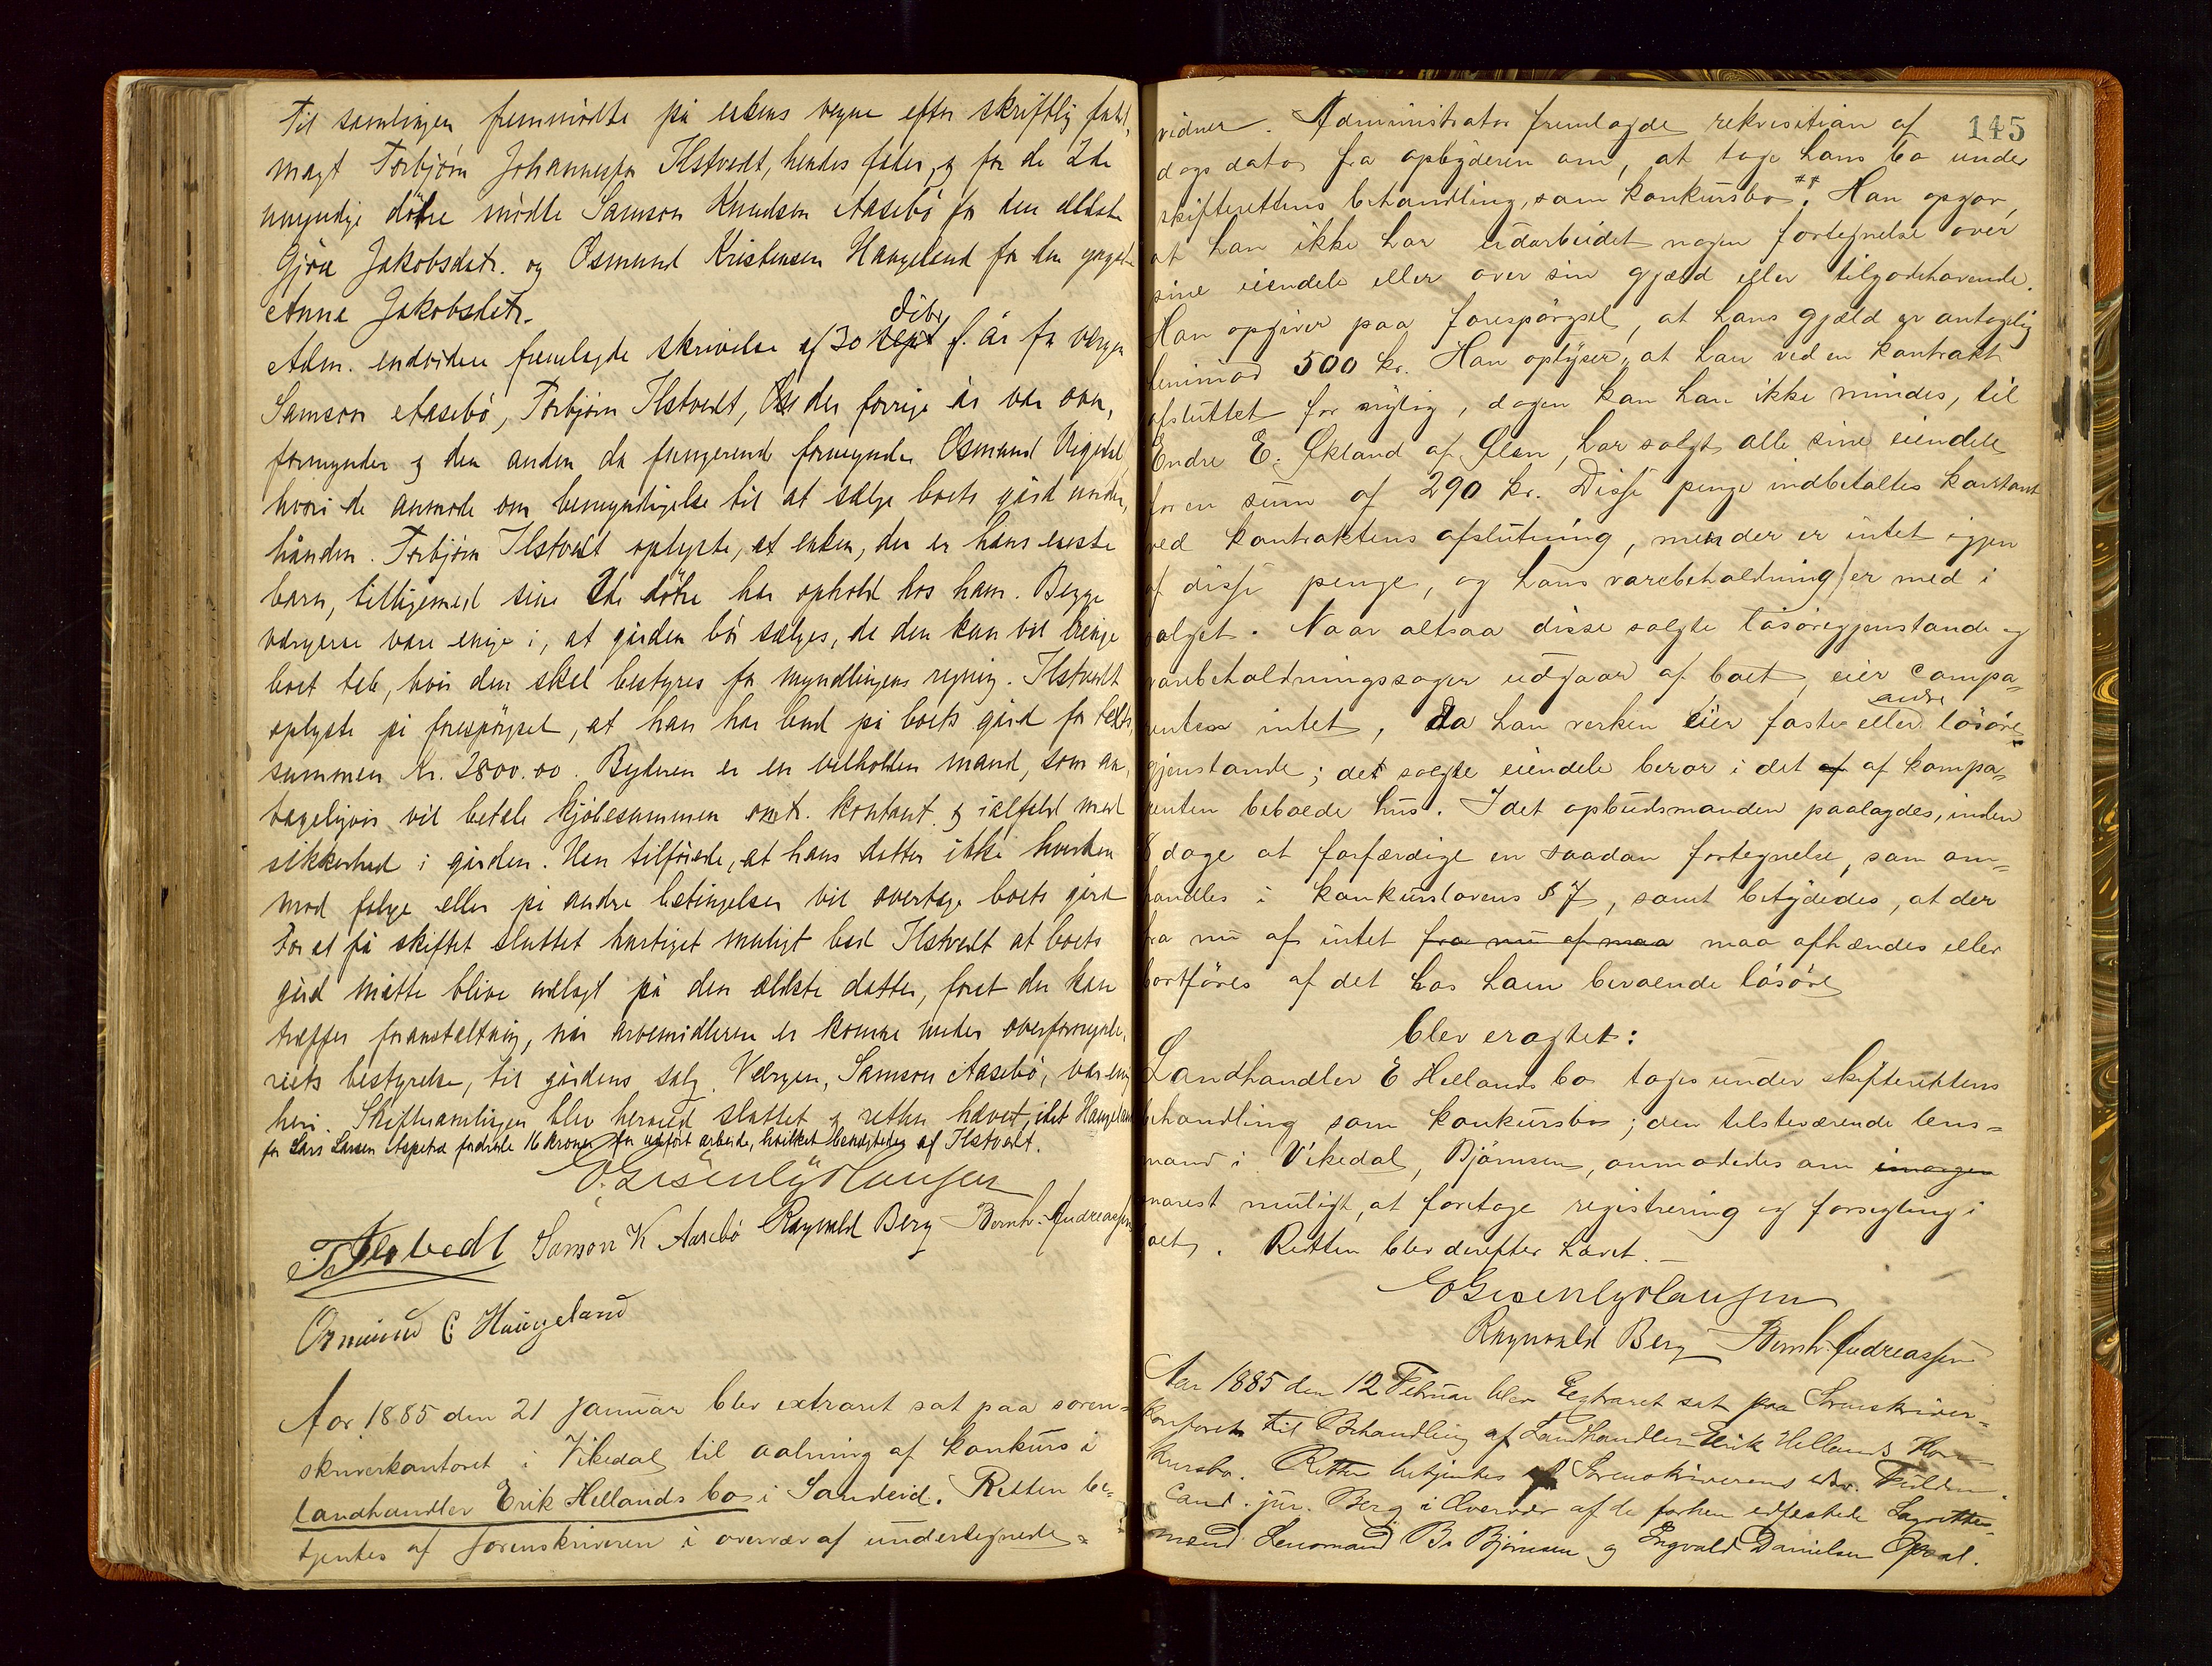 Til samlingen fremmödte på enkens vegne efter skriftlig fuld,
magt Torbjörn Johannesen Ilstvedt, hendes fader, og for de 2de
umyndige dötre mödte Samson Knudsen Aasebö for den ældste
Gjöa Jakobsdatr. og Osmund Kristensen Haugeland for den yngste
Anna Jakobsdatr.
Adm. endvidere fremlagde skrivelse af 30 sept dcbr f. år fra værgen
Samson Aasebö, Torbjörn Ilstvedt, der forrige år var over,
formynder og den anden da fungerende formynder Osmund
hvori de anmode om bemyndigelse til at sælge boets gård under,
hånden. Torbjörn Ilstvedt oplyste, at enken, der er hans eneste
barn, tilligemed sine 2de dötre har ophold hos ham. Begge
værgerne vare enige i, at gården bör sælges, da den kun vil bringe
boet tab, hvis den skal bestyres for myndlingens regning. Ilstvedt
oplyste på forespörgsel, at han har bud på boets gård for
summen Kr. 2800.00. Byderen er en velholden mand, som an,
tageligvis vil betale kjöbesummen omtr. kontant og ialfald med
sikkerhed i gården. Han tilföiede, at hans datter ikke hverken
mod fölge eller på andre betingelser vil overtage boets gård
For at få skiftet sluttet hurtigst muligt bad Ilstvedt at boets
gård måtte blive udlagt på den ældste datter, forat der kan
træffes foranstaltning, når arvemidlerne er komne under overformynde,
riets bestyrelse, til gårdens salg. Værgen, Samson Aasebö, var enig
heri. Skiftesamlingen blev hermed sluttet og retten hævet, idet Haugeland
for Lars Larsen fordrede 16 kroner for udfört arbeide, hvilket benægtedes af Ilstvedt.
T Ilstvedt Samson K Aasebö Ragnvald Berg Bernh. Andreassen
Osmund C Haugeland
Aar 1885 den 21 januar blev extraret sat paa soren=
skriverkontoret i Vikedal til aabning af konkurs i
landhandler Erik Hellands bo i Sandeid. Retten be=
tjentes af sorenskriveren i overvær af undertegnede=
145
vidner. Administrator fremlagde rekvisition af
dags dato fra opbyderen om, at tage hans bo under
skifterettens behandling, som konkursbo. Han opgav,
at han ikke har udarbeidet nogen fortegnelse over
sine eiendele eller over sin gjæld eller tilgodehavende.
Han opgiver paa forespörgsel, at hans gjæld er antagelig
henimod 500 kr. Han oplyser, at han ved en kontrakt
afsluttet for nylig, dagen kan han ikke mindes, til
Endre E. Økland af Ølen, har solgt alle sine eiendele
for en sum af 290 kr. Disse penge indbetaltes kontant
ved kontraktens afslutning, men der er intet igjen
af disse penge, og hans varebeholdning er med i
salget. Naar altsaa disse solgte lösöregjenstande og
varebeholdningssager udgaar af boet, eier compa=
renten intet, da han verken eier faste eller andre lösöre
gjenstande; det solgte eiendele beror i det af af kompa=
renten beboede hus. Idet opbudsmanden paalagdes, inden
8 dage at forfærdige en saadan fortegnelse, som om=
handles i konkurslovens § 7, samt betydedes, at der
fra nu af intet fra nu af maa maa afhændes eller
bortföres af det hos ham beroende lösöre
blev eragtet:
Landhandler E Hellands bo tages under skifterettens
behandling som konkursbo; den tilstedeværende lens=
mand i Vikedal, Björnsen, anmodedes om imorgen
snarest muligt, at foretage registrering og forsegling i
boet. Retten blev derefter hævet.
Ragnvald Berg Bernh. Andreassen
Aar 1885 den 12 Februar blev Extraret sat paa Sorenskriver=
kontoret til Behandling af Landhandler Erik Hellands Kon=
kursbo. Retten betjentes af Sorenskriverens edsv. Fuldm.
Cand. jur. Berg i Overvær af de forhen edfæstede Lagrettes=
mænd Lensmand Br Björnsen og Engvald Danielsen Opsal.